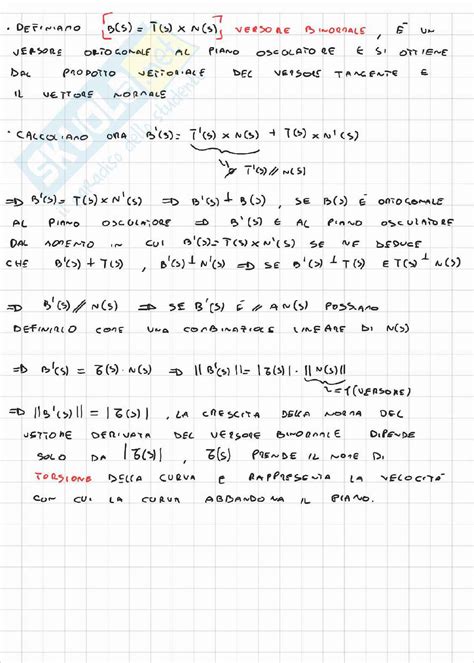 • DEFINIAMO [B(s) = T(s) × N(s)] VERSORE BINORMALE, È UN
VERSORE ORTOGONALE AL PIANO OSCOLATORE E SI OTTIENE
DAL PRODOTTO VETTORIALE DEL VERSORE TANGENTE E
IL VETTORE NORMALE
• CALCOLIAMO ORA B'(s) = T'(s) × N(s) + T(s) × N'(s)
0 T'(s) // N(s)
⇒ B'(s) = T(s) × N'(s) ⇒ B'(s) ⊥ B(s), SE B(s) È ORTOGONALE
AL PIANO OSCULATORE ⇒ B'(s) È AL PIANO OSCULATORE
DAL MOMENTO IN CUI B'(s) = T(s) × N'(s) SE NE DEDUCE
CHE B'(s) ⊥ T(s), B'(s) ⊥ N'(s) ⇒ SE B'(s) ⊥ T(s) E T(s) ⊥ N(s)
⇒ B'(s) // N(s) ⇒ SE B'(s) È // A N(s) POSSIAMO
DEFINIRLO COME UNA COMBINAZIONE LINEARE DI N(s)
⇒ B'(s) = τ(s) · N(s) ⇒ ||B'(s)|| = |τ(s)| · ||N(s)||
= 1 (VERSORE)
⇒ ||B'(s)|| = |τ(s)|, LA CRESCITA DELLA NORMA DEL
VETTORE DERIVATA DEL VERSORE BINORMALE DIPENDE
SOLO DA |τ(s)|, τ(s) PRENDE IL NOME DI
TORSIONE DELLA CURVA E RAPPRESENTA LA VELOCITÀ
CON CUI LA CURVA ABBANDONA IL PIANO.
SKUOLA.net
il paradiso dello studente